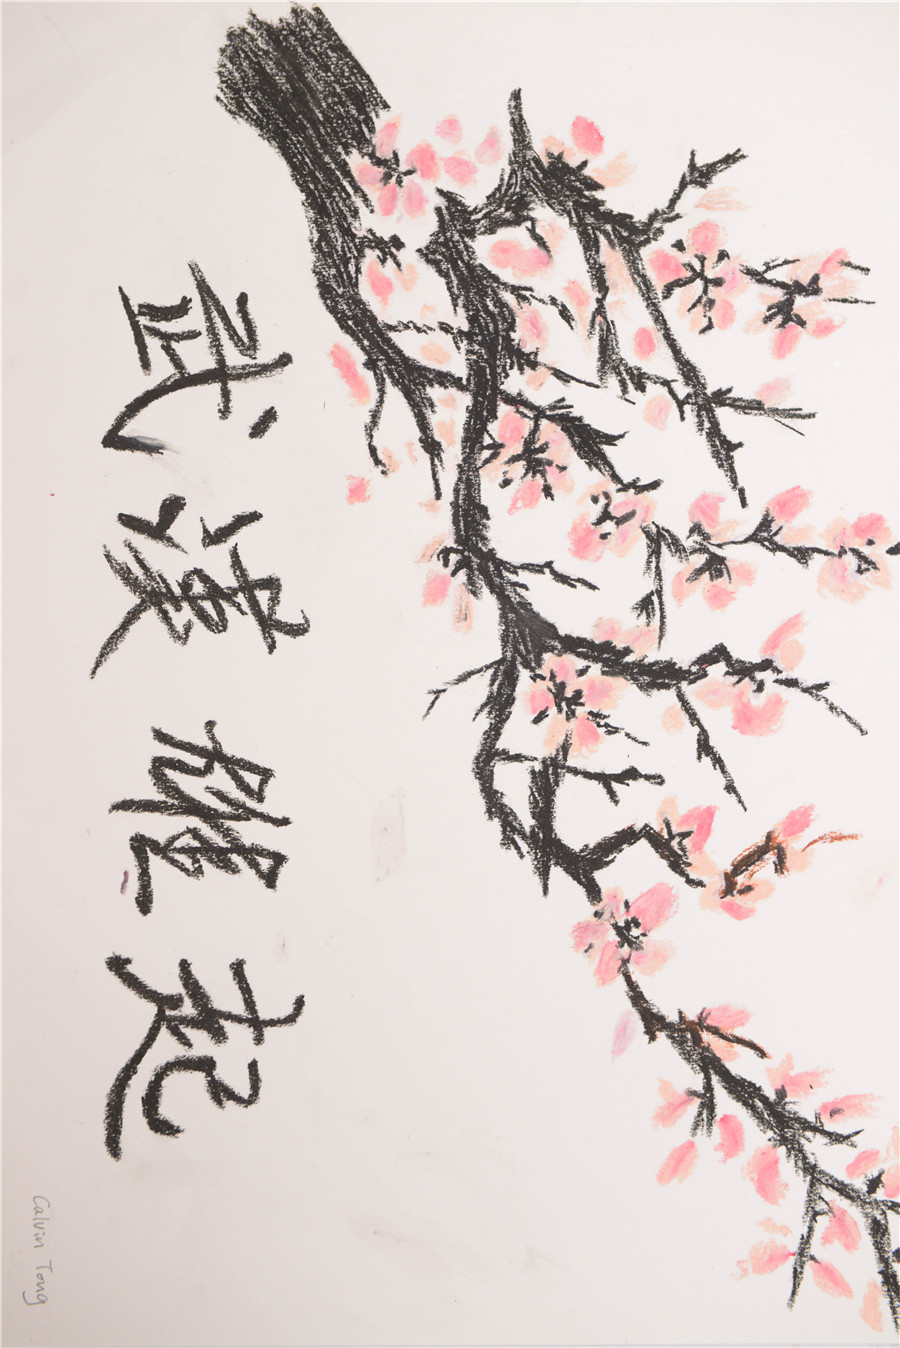 武漢雄起
Calvin Tong